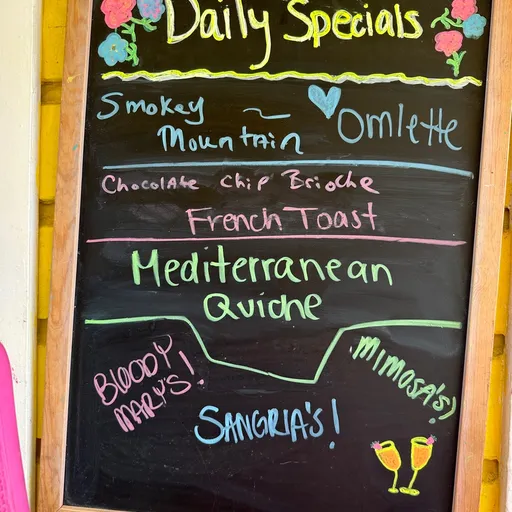 Daily Specials
Smokey ~ Omlette
Mountain
Chocolate Chip Brioche
French Toast
Mediterranean
Quiche
BLOODY MARY'S!
MIMOSA'S!
SANGRIA'S!